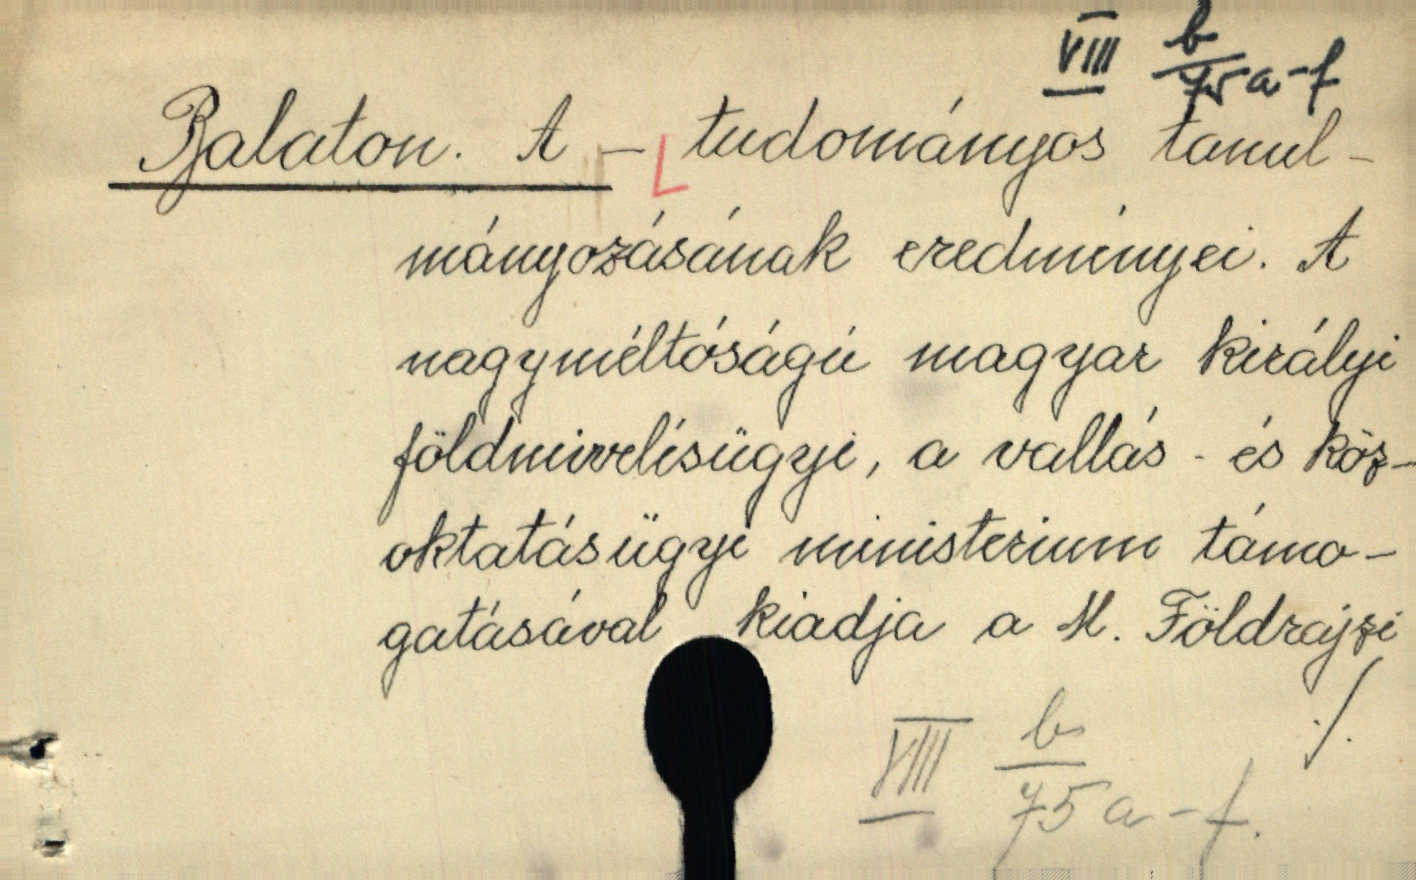 VIII b/75 a-f
Balaton. A – tudományos tanul-
mányozásának eredményei. A
nagyméltóságú magyar királyi
földmivelésügyi, a vallás- és köz-
oktatásügyi ministerium támo-
gatásával kiadja a M. Földrajzi
./.
VIII b/75 a-f.